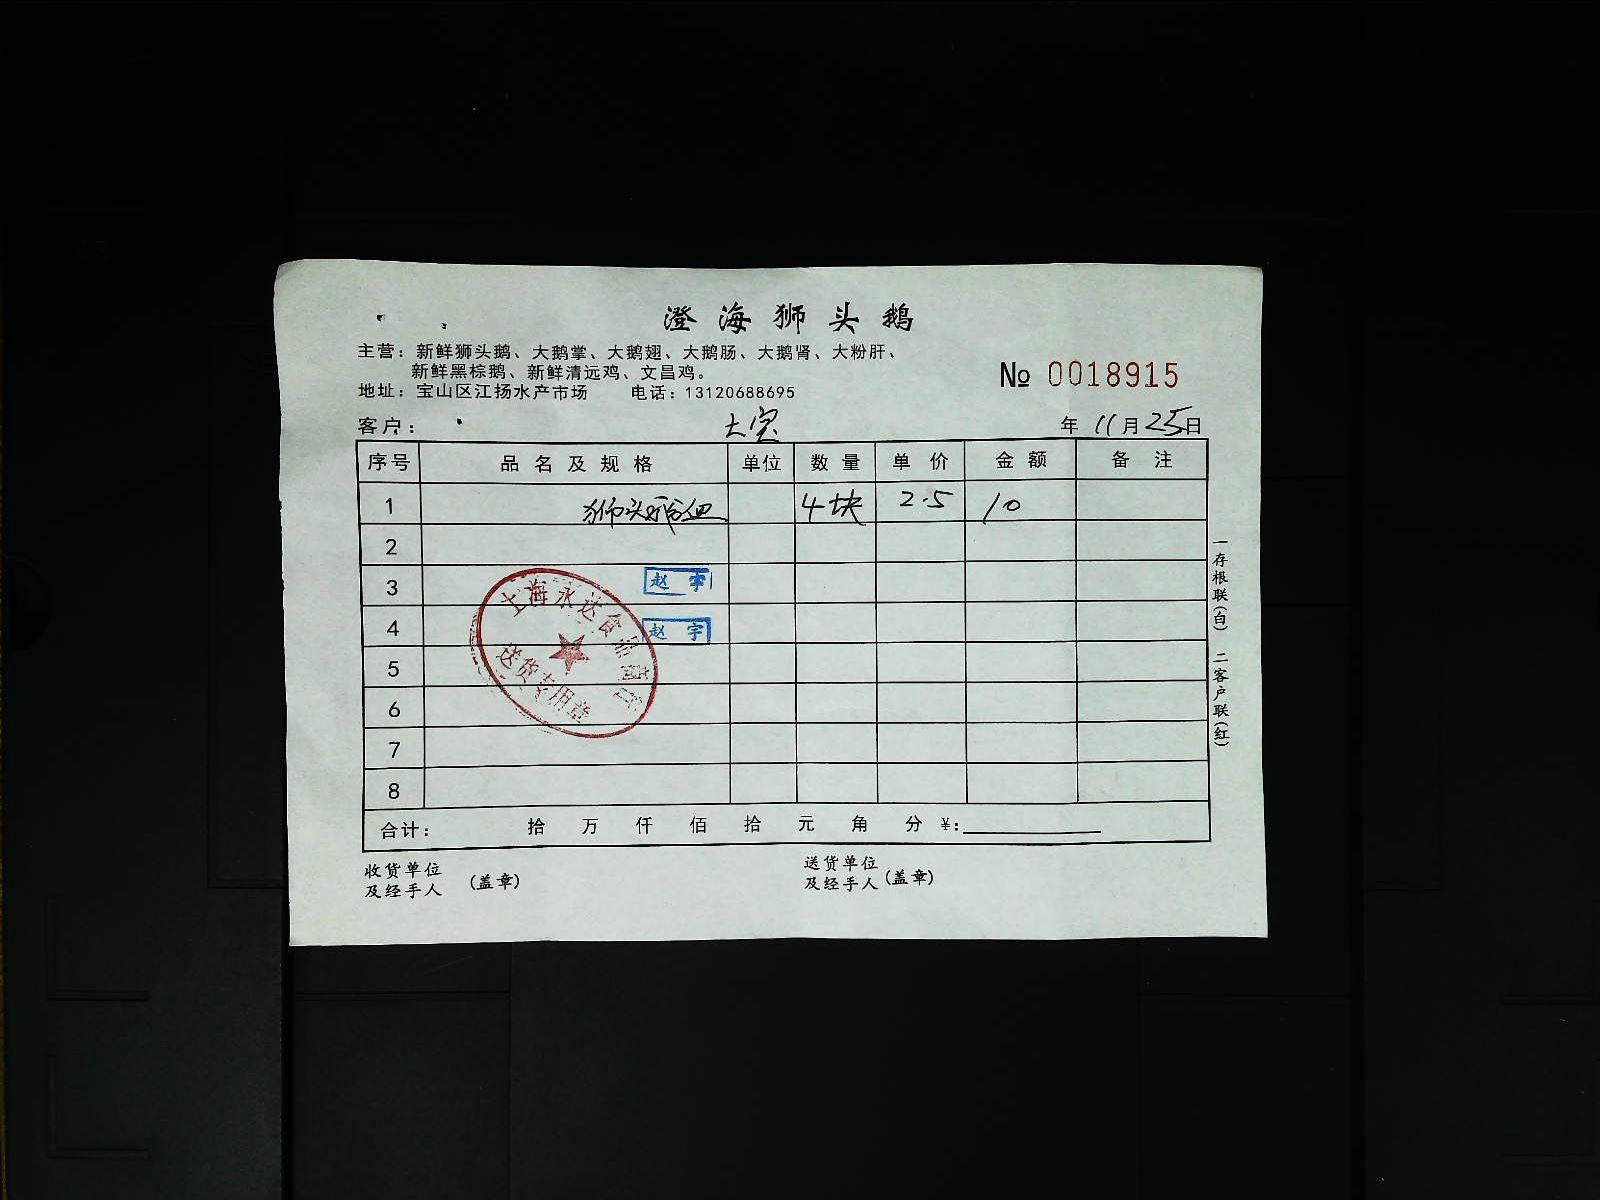 澄海狮头鹅
主营：新鲜狮头鹅、大鹅掌、大鹅翅、大鹅肠、大鹅肾、大粉肝、
新鲜黑棕鹅、新鲜清远鸡、文昌鸡。
№ 0018915
地址：宝山区江扬水产市场 电话：13120688695
客户： 大宝 年 11月25日
序号 品名及规格 单位 数量 单价 金额 备注
1 狮头鹅血 4块 2.5 10
2
3 赵宇
4 赵宇
5
6
7
8
上海永达食品商行
送货专用章
合计： 拾 万 仟 佰 拾 元 角 分 ¥：
收货单位
及经手人 (盖章)
送货单位
及经手人 (盖章)
一存根联(白) 二客户联(红)